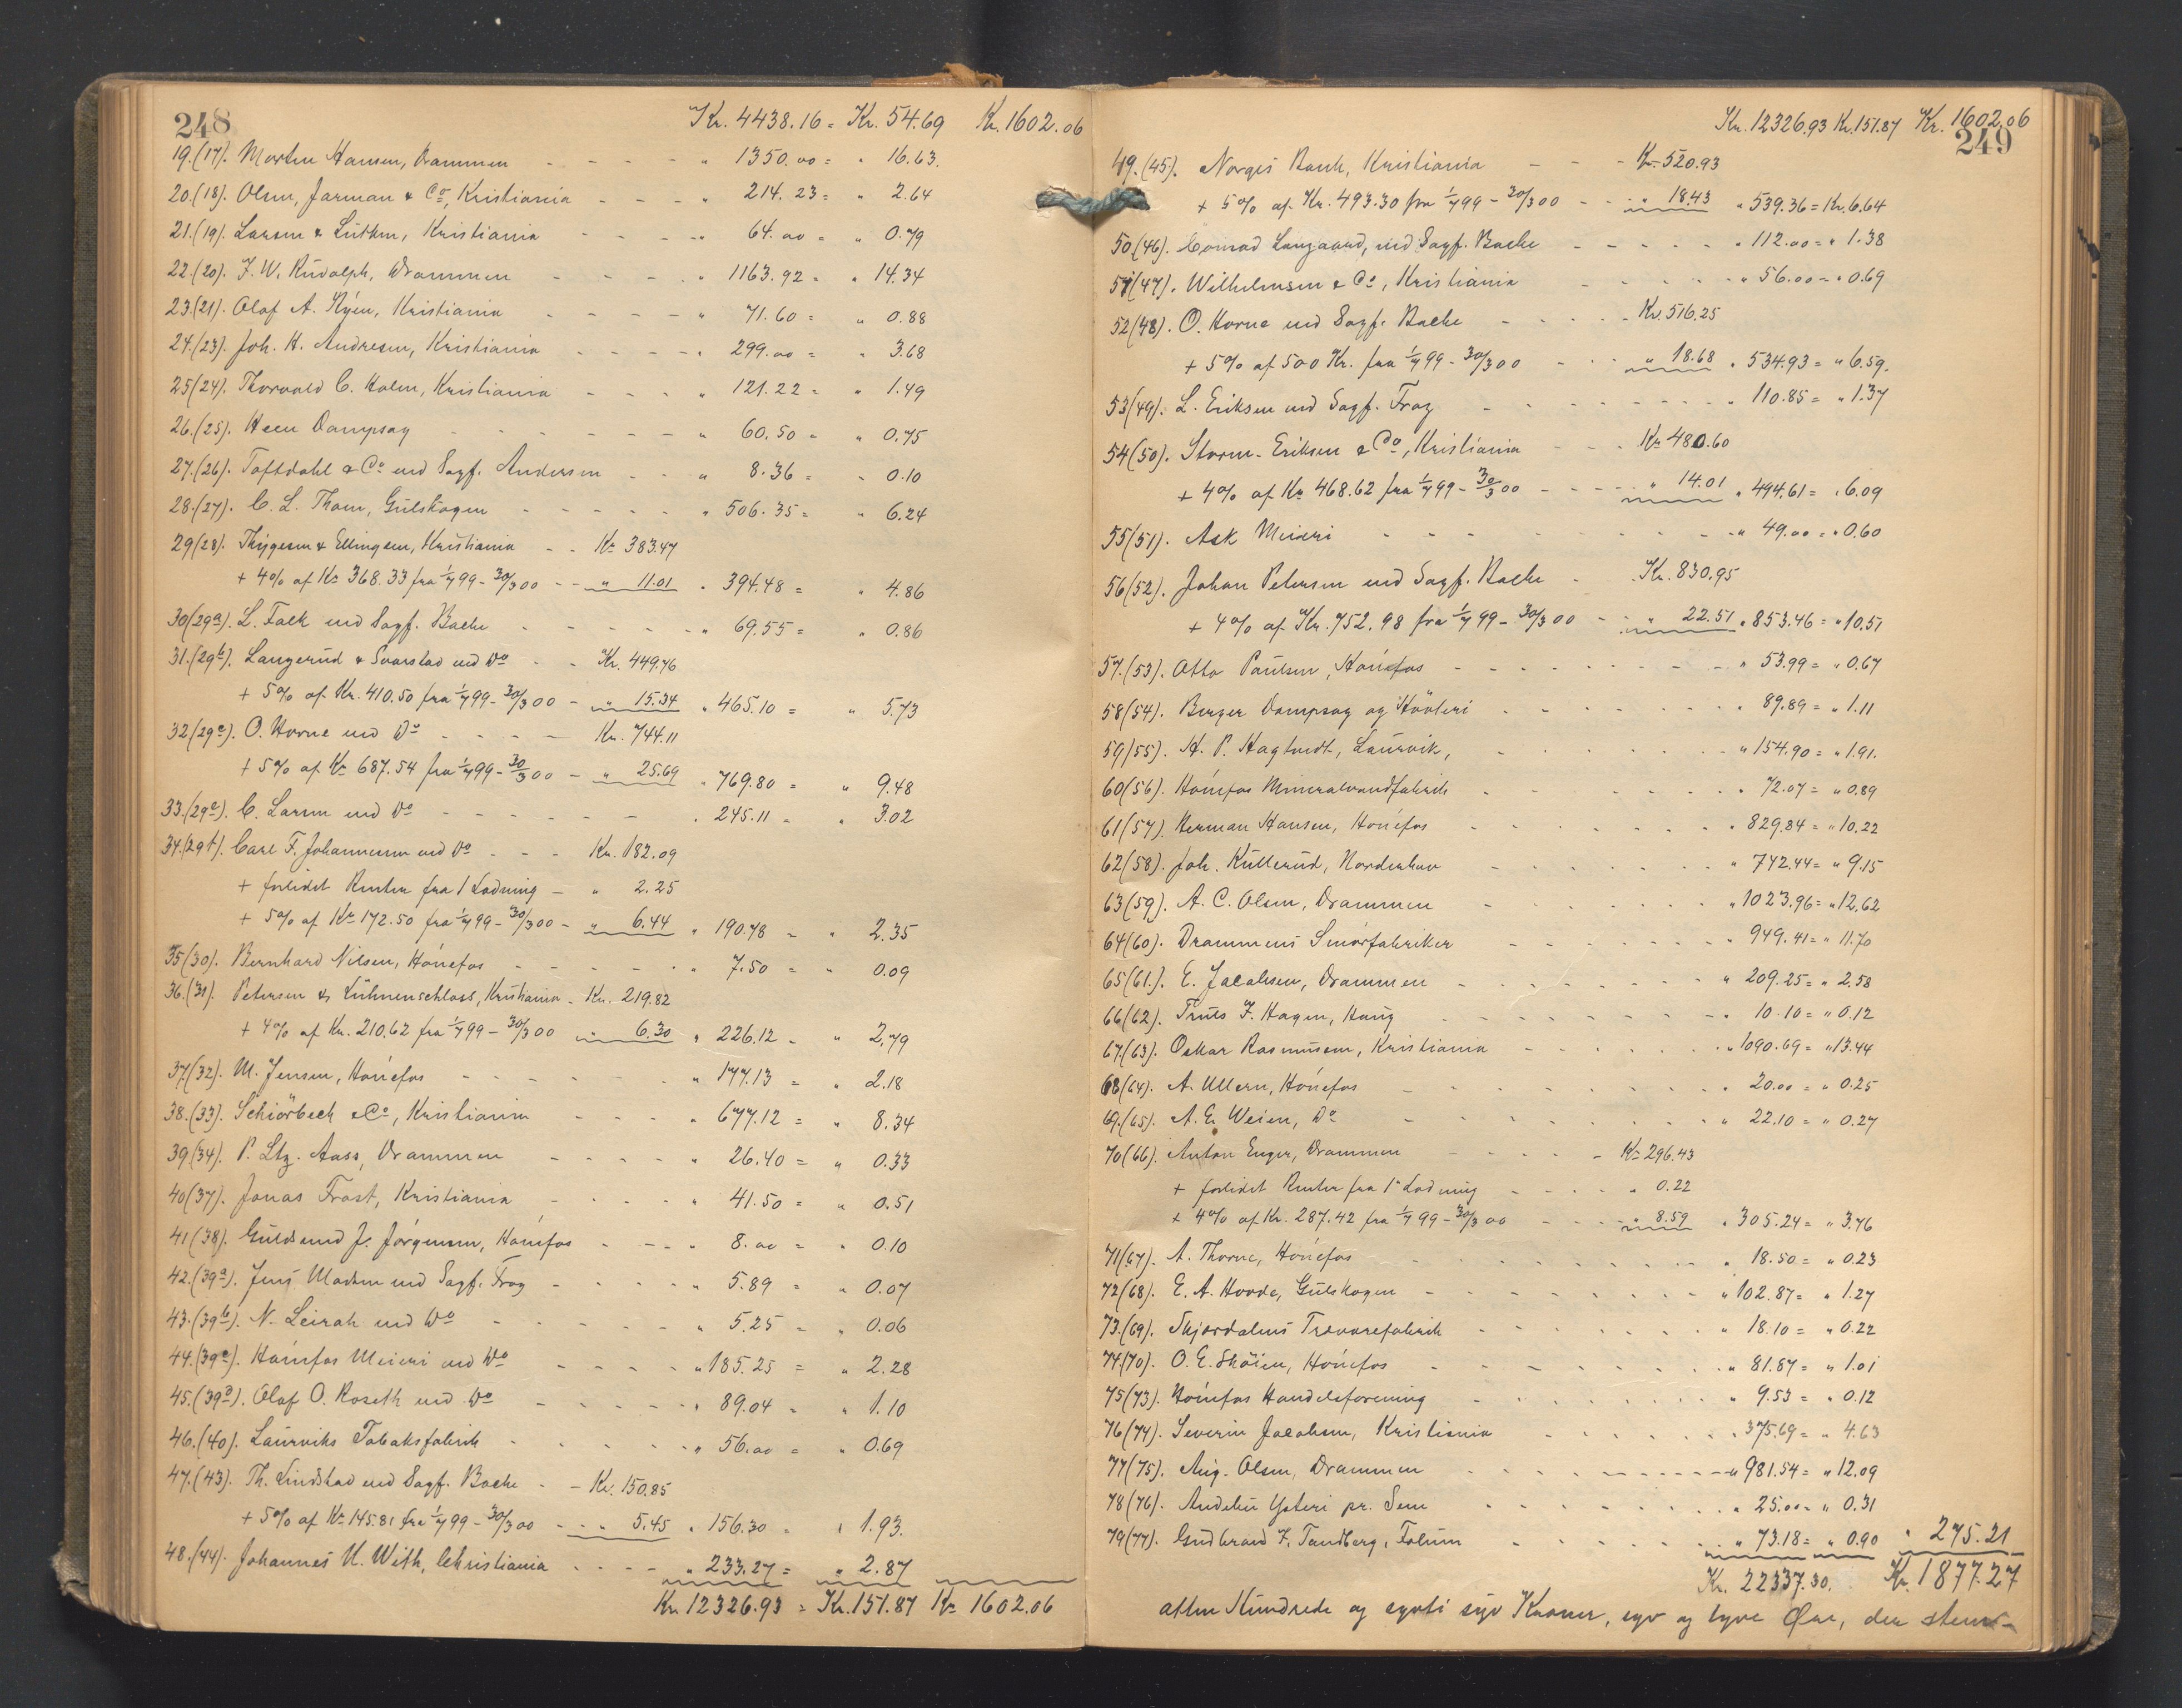 248
Kr. 4438.16 = Kr. 54.69 Kr. 1602.06
19.(17). Morten Hansen, Drammen - - - - " 1350.00 = " 16.63.
20.(18). Olsen, Jarman & Co, Kristiania - - - " 214.23 = " 2.64
21.(19). Larsen & Lütken, Kristiania - - - - " 64.00 = " 0.79
22.(20). F. W. Rudolph, Drammen - - - - " 1163.92 = " 14.34
23.(21). Olaf A. Ryen, Kristiania - - - - " 71.60 = " 0.88
24.(23). Joh. H. Andresen, Kristiania - - - - " 299.00 = " 3.68
25(24). Thorvald C. Holm, Kristiania - - - " 121.22 = " 1.49
26.(25). Heen Dampsag - - - - - - " 60.50 = " 0.75
27.(26). Toftdahl & Co ved Sagf. Andersen - - " 8.36 = " 0.10
28.(27). C. L. Thom, Gulskogen - - - - - " 506.35 = " 6.24
29(28). Thygesen & Ellingsen, Kristiania - - Kr 383.47
+ 4% af Kr 368.33 fra 1/7 99 - 30/3 00 - - " 11.01 " 394.48 = " 4.86
30(29a). L. Falk ved Sagf. Bache - - - - - " 69.55 = " 0.86
31.(29b). Langerud & Svarstad ved Do - - Kr. 449.76
+ 5% af Kr. 410.50 fra 1/7 99 - 30/3 00 - " 15.34 " 465.10 = " 5.73
32(29c). O. Horne ved Do - - - - Kr. 744.11
+ 5% af Kr 687.54 fra 1/7 99 - 30/3 00 - " 25.69 " 769.80 = " 9.48
33.(29e). C. Larsen ved Do - - - - - - " 245.11 = " 3.02
34.(29f). Carl F. Johannesen ved Do - - - Kr. 182.09
+ forlidt Renter fra 1 Lodning - " 2.25
+ 5% af Kr 172.50 fra 1/7 99 - 30/3 00 - " 6.44 " 190.78 = " 2.35
35(30). Bernhard Nilsen, Hónefos - - - - - " 7.50 = " 0.09
36.(31). Petersen & Lühnenschloss, Kristiania - Kr. 219.82
+ 4% af Kr. 210.62 fra 1/7 99 - 30/3 00 " 6.30 " 226.12 = " 2.79
37(32). M. Jensen, Hónefos - - - - - - " 177.13 = " 2.18
38.(33). Schiörbeck & Co, Kristiania - - - - " 677.12 = " 8.34
39(34). P. Ltz. Aass, Drammen - - - - " 26.40 = " 0.33
40(37). Jonas Frost, Kristiania - - - - " 41.50 = " 0.51
41(38). Guldsmed J. Jórgensen, Hónefos - - - " 8.00 = " 0.10
42.(39a). Jens Madsen ved Sagf. Frog - - - - " 5.89 = " 0.07
43.(39b). N. Leirah ved Do - - - - - - " 5.25 = " 0.06
44.(39c). Hónefos Meieri ved Do - - - - " 185.25 = " 2.28
45.(39d). Olaf O. Roseth ved Do - - - - - " 89.04 = " 1.10
46.(40). Laurviks Tobaksfabrik - - - - - " 56.00 = " 0.69
47.(43). Th. Lindstad ved Sagf. Bache - - Kr. 150.85
+ 5% af Kr 145.81 fra 1/7 99 - 30/3 00 - - " 5.45 " 156.30 = " 1.93.
48.(44). Johannes H. With, Christiania - - - - " 233.27 = " 2.87
Kr. 12326.93 = Kr. 151.87 Kr 1602.06
Kr. 12326.93 Kr. 151.87 Kr. 1602.06
249
49.(45). Norges Bank, Kristiania - - - Kr 520.93
+ 5% af Kr. 493.30 fra 1/7 99 - 30/3 00 - - " 18.43 " 539.36 = Kr. 6.64
50.(46). Conrad Langaard, ved Sagf. Bache - - - - - " 112.00 = " 1.38
51(47). Wilhelmsen & Co, Kristiania - - - - - " 56.00 = " 0.69
52(48). O. Horne ved Sagf. Bache - - - - Kr. 516.25
+ 5% af 500 Kr. fra 1/7 99 - 30/3 00 - - - " 18.68 " 534.93 = " 6.59.
53(49). L. Eriksen ved Sagf. Frog - - - - - - - " 110.85 = " 1.37
54(50). Storm-Eriksen & Co, Kristiania - - - Kr 480.60
+ 4% af Kr 468.62 fra 1/7 99 - 30/3 00 - - - - " 14.01 " 494.61 = " 6.09
55(51). Ask Meieri - - - - - - - - - " 49.00 = " 0.60
56(52). Johan Petersen ved Sagf. Bache - Kr. 830.95
+ 4% af Kr. 752.98 fra 1/7 99 - 30/3 00 - - " 22.51 " 853.46 = " 10.51
57.(53). Otto Paulsen, Hónefos - - - - - - - - " 53.99 = " 0.67
58(54). Berger Dampsag og Hövleri - - - - - - - " 89.89 = " 1.11
59(55). H. P. Hagtvedt, Laurvik, - - - - - - " 154.90 = " 1.91.
60(56). Hónefos Mineralvandfabrik - - - - - - " 72.07 = " 0.89
61(57). Herman Hansen, Hónefos - - - - - - - " 829.84 = " 10.22
62(58). Joh. Kullerud, Norderhov - - - - - - " 742.44 = " 9.15
63(59). A. C. Olsen, Drammen - - - - - - - " 1023.96 = " 12.62
64(60). Drammens Smörfabriker - - - - - - " 949.41 = " 11.70
65(61.). E. Jacobsen, Drammen - - - - - - - " 209.25 = " 2.58
66(62). Truls F. Hagen, Haug - - - - - - - " 10.10 = " 0.12
67.(63). Oskar Rasmussen, Kristiania - - - - - " 1090.69 = " 13.44
68(64). A. Ullern, Hónefos - - - - - - - " 20.00 = " 0.25
69.(65). A. E. Weien, Do - - - - - - - - " 22.10 = " 0.27
70(66). Anton Enger, Drammen - - - - - Kr 296.43
+ forlidt Renter fra 1ste Lodning - - - - " 0.22
+ 4% af Kr. 287.42 fra 1/7 99 - 30/3 00 - - - " 8.59 " 305.24 = " 3.76
71(67). A. Thorne, Hónefos - - - - - - - - " 18.50 = " 0.23
72(68). E. A. Hovde, Gulskogen - - - - - - - " 102.87 = " 1.27
73.(69). Skjærdalens Trævarefabrik - - - - - - " 18.10 = " 0.22
74.(70). O. E. Sköien, Hónefos - - - - - - - " 81.87 = " 1.01
75(73). Hónefos Handelsforening - - - - - - " 9.53 = " 0.12
76(74). Severin Jacobsen, Kristiania - - - - - " 375.69 = " 4.63
77(75). Aug. Olsen, Drammen - - - - - - - " 981.54 = " 12.09
78(76). Andebu Ysteri pr. Sem - - - - - - - " 25.00 = " 0.31
79(77). Gudbrand F. Tandberg, Follum - - - - - " 73.18 = " 0.90 " 275.21
Kr. 22337.30. Kr. 1877.27
atten Hundrede og sytti syv Kroner, syv og tyve Øre, der stem-